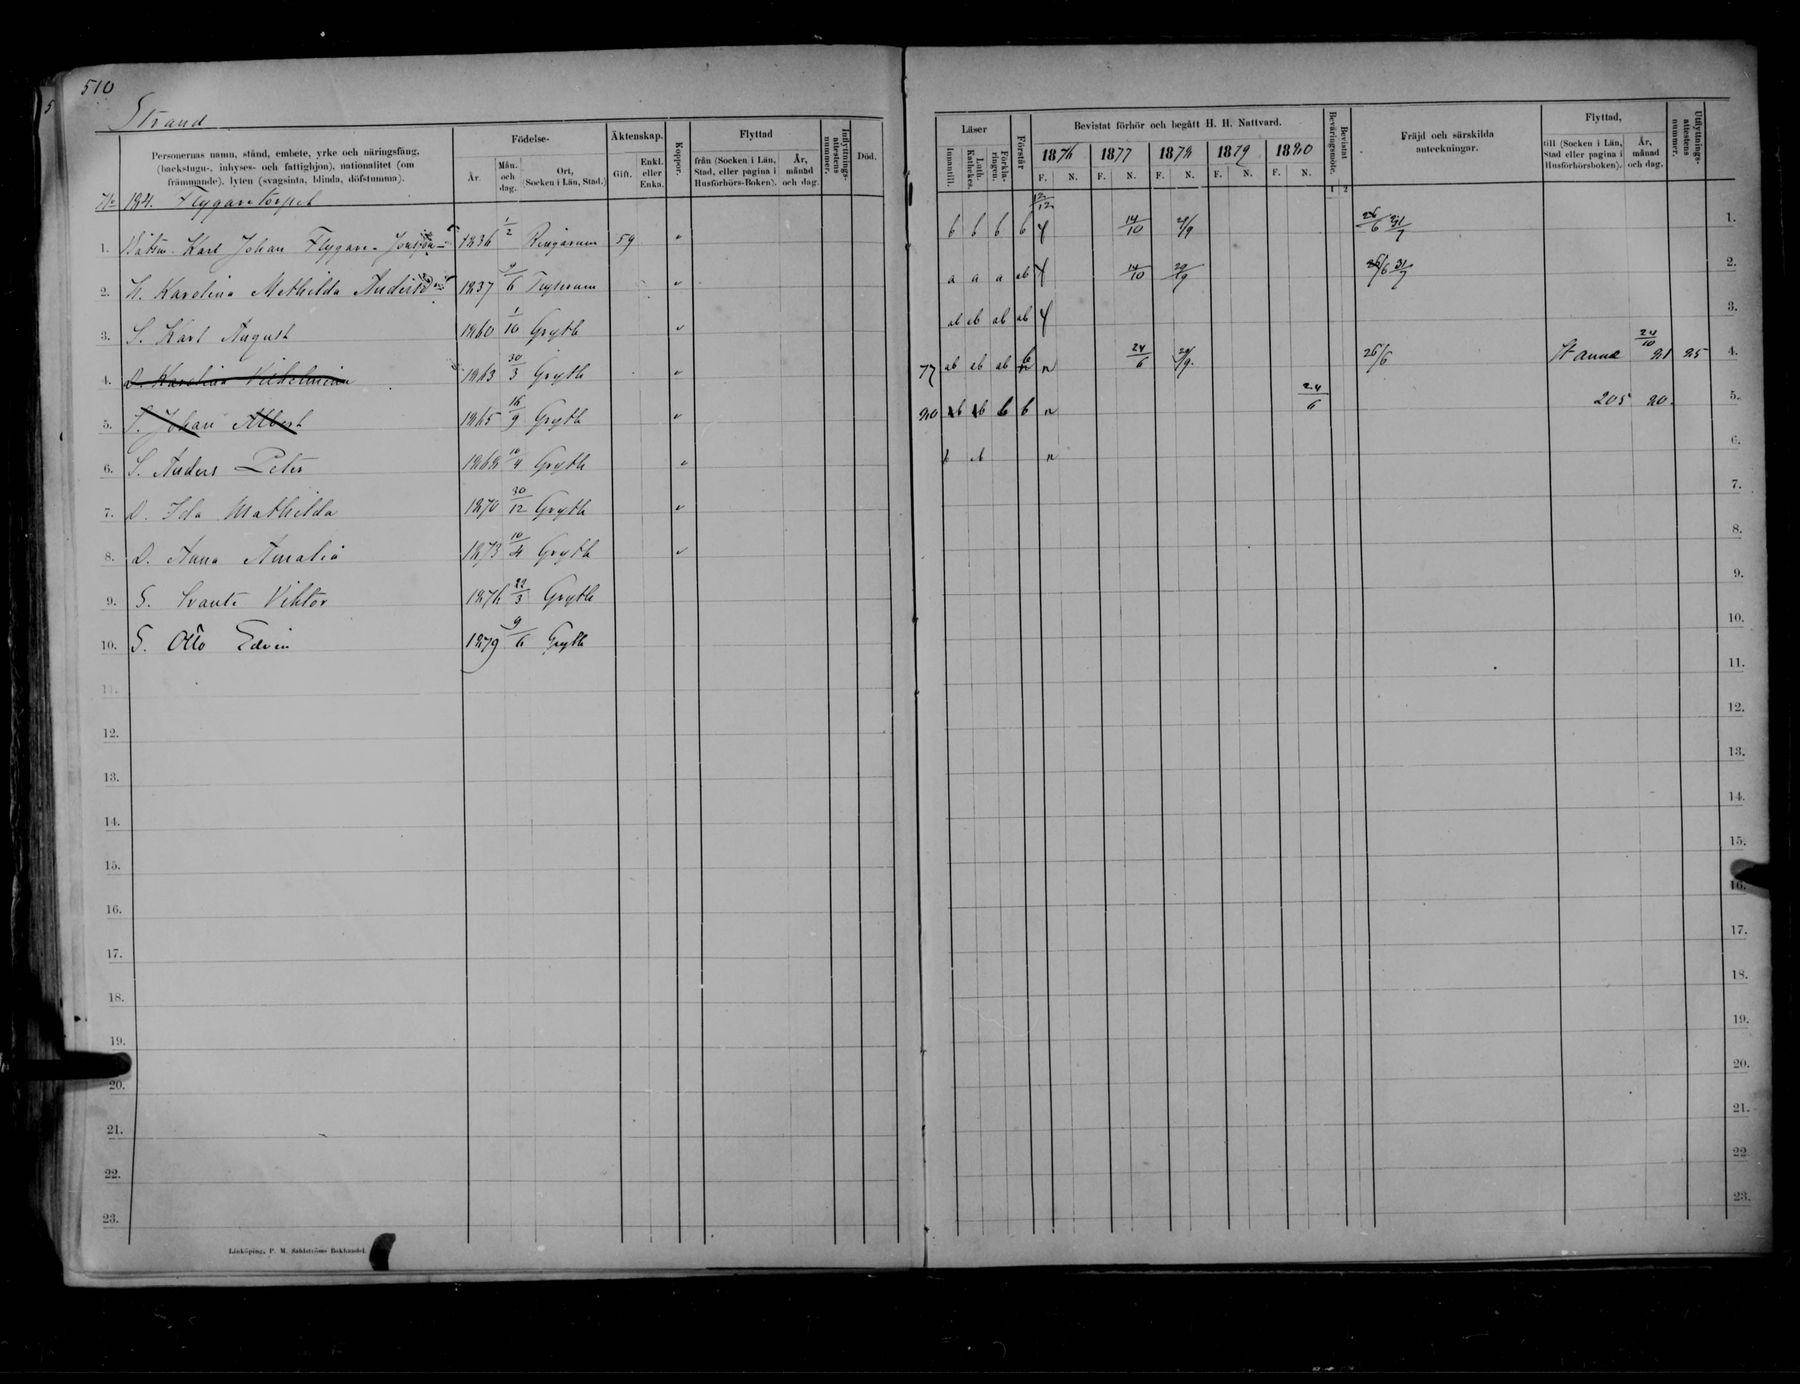 510
Strand
Personernas namn, stånd, embete, yrke och näringsfång,
(backstugu-, inhyses- och fattighjon), nationalitet (om
främmande), lyten (svagsinta, blinda, döfstumma).
Födelse-
År.
Mån. och dag.
Ort, (Socken i Län, Stad.)
Äktenskap.
Gift.
Enkl. eller Enka.
Koppor.
Flyttad
från (Socken i Län, Stad, eller pagina i Husförhörs-Boken).
År, månad och dag.
Inflyttnings-attestens nummer.
Död.
No 184. Flygaretorpet
1. Båtsm. Karl Johan Flygare-Jonsson 1836 1/2 Ringarum 59 v
2. H. Karolina Mathilda Andersd. 1837 9/6 Tryserum v
3. S. Karl August 1860 1/10 Gryth v
4. D. Karolina Vilhelmina 1863 30/3 Gryth v
5. S. Johan Albert 1865 16/9 Gryth v
6. S. Anders Peter 1868 10/4 Gryth v
7. D. Ida Mathilda 1870 30/12 Gryth v
8. D. Anna Amalia 1873 10/4 Gryth v
9. S. Svante Viktor 1876 22/3 Gryth
10. S. Otto Edvin 1879 9/6 Gryth
11.
12.
13.
14.
15.
16.
17.
18.
19.
20.
21.
22.
23.
Linköping, P. M. Sahlströms Bokhandel.
Läser
Innantill.
Luth. Kateches.
Förkla-ringen.
Förstår
Bevistat förhör och begått H. H. Nattvard.
1876 1877 1878 1879 1880
F. N. F. N. F. N. F. N. F. N.
Bevistat Beväringsmöte.
1 2
Fräjd och särskilda
anteckningar.
Flyttad,
till (Socken i Län, Stad eller pagina i Husförhörsboken).
År, månad och dag.
Utflyttnings-attestens nummer.
12/12
b b b b 14/10 26/6 31/7 1.
a a a ab 14/10 29/9 26/6 31/7 2.
ab ab ab ab 3.
77 ab ab ab b n 24/6 29/9 26/6 St anna 24/10 21 25 4.
80 ab ab b b n 24/6 205 80. 5.
b ab n 6.
7.
8.
9.
10.
11.
12.
13.
14.
15.
16.
17.
18.
19.
20.
21.
22
23.